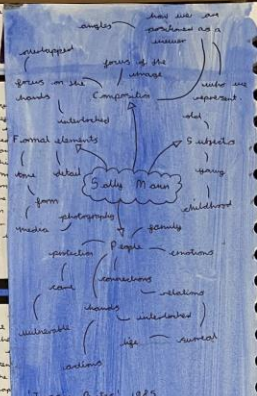 how we are
angles
positioned as a
viewer
overlapped
focus of the
image
focus on the
hands
Composition
who we
represent.
interlocked
old
Formal elements
Subjects
tone
detail
young
Sally Mann
form
childhood
photography
media
family
People
protection
emotions
connections
care
relations
hands
interlocked
vulnerable
life
surreal
actions
1985